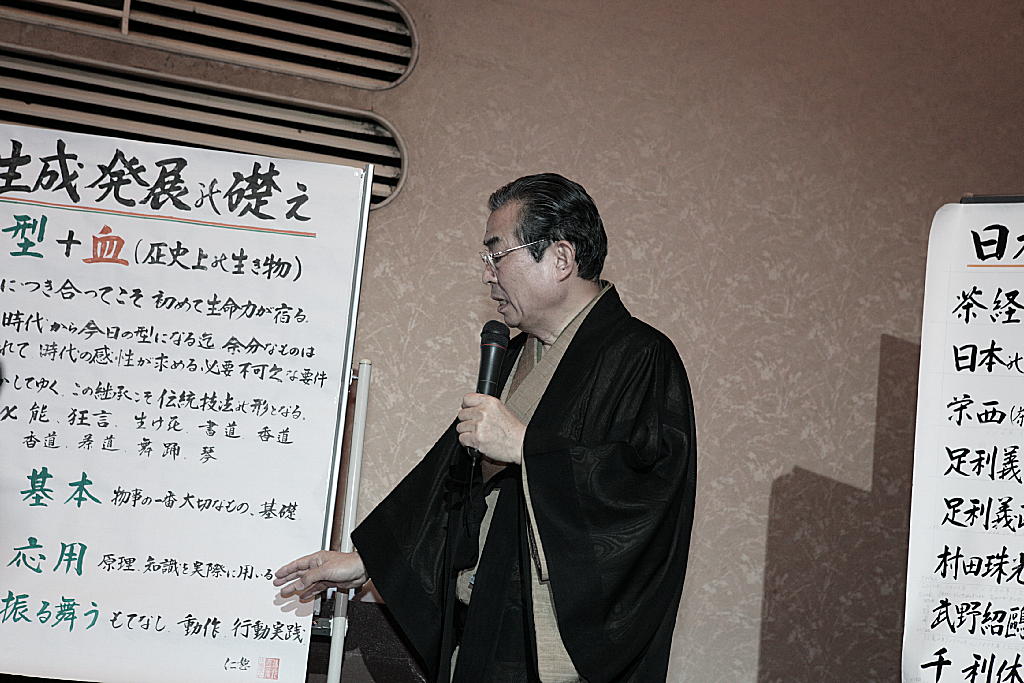 生成発展の礎え
型＋血(歴史上の生き物)
につき合ってこそ 初めて生命力が宿る.
時代から今日の型になる迄 余分なものは
れて 時代の感性が求める、必要不可欠な要件
かしてゆく、この継承こそ伝統技法の形となる.
能、狂言、生け花、書道、香道
香道、茶道、舞踊、琴
基本 物事の一番大切なもの、基礎
応用 原理、知識を実際に用いる
振る舞う もてなし、動作、行動実践
仁悠
日本
茶経
日本の
栄西(茶
足利義
足利義政
村田珠光
武野紹鷗
千利休